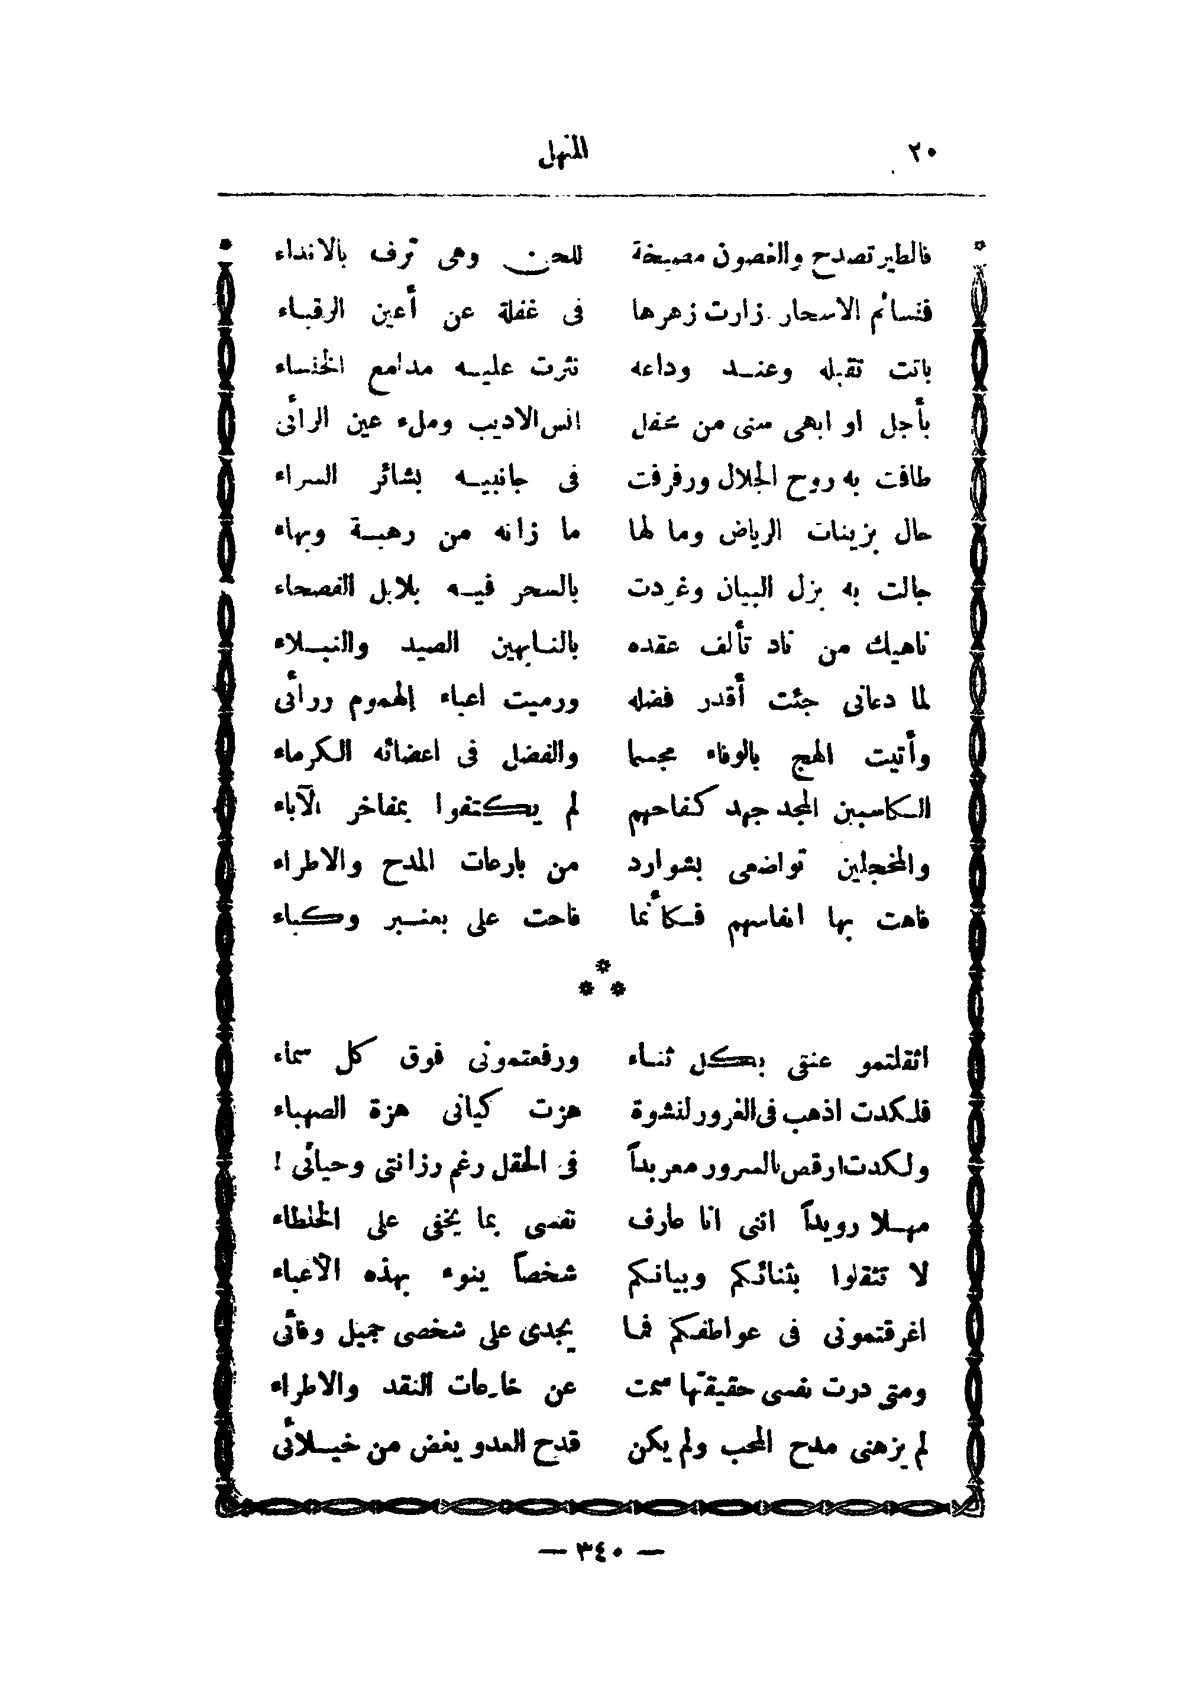 ٢٠ المنهل
فالطير تصدح والغصون مصيخة للحن وهى ترف بالانداء
فنسائم الاسحار زارت زهرها فى غفلة عن أعين الرقباء
باتت تقبله وعند وداعه نثرت عليه مدامع الخنساء
بأجل او ابهى سنى من محفل انس الاديب وملء عين الرأئى
طافت به روح الجلال ورفرفت فى جانبيه بشائر السراء
حال بزينات الرياض وما لها ما زانه من رهبة وبهاء
جالت به بزل البيان وغردت بالسحر فيه بلابل الفصحاء
ناهيك من ناد تألف عقده بالنابهين الصيد والنبلاء
لما دعانى جئت أقدر فضله ورميت اعباء الهموم ورأئى
وأتيت الهج بالوفاء مجسما والفضل فى اعضائه الكرماء
الكاسبين المجد جهد كفاحهم لم يكتفوا بمفاخر الآباء
والمخجلين تواضعى بشوارد من بارعات المدح والاطراء
فاهت بها انفاسهم فكأنما فاحت على بعنبر وكباء
*
* *
اثقلتمو عنقى بكل ثناء ورفعتمونى فوق كل سماء
فلكدت اذهب فى الغرور لنشوة هزت كيانى هزة الصهباء
ولكدت ارقص بالسرور معربداً فى الحفل رغم رزانتى وحيائى !
مهلا رويداً اننى انا عارف نفسى بما يخفى على الخلطاء
لا تثقلوا بثنائكم وبيانكم شخصاً ينوء بهذه الأعباء
اغرقتمونى فى عواطفكم فما يجدى على شخصى جميل وفائى
ومتى درت نفسى حقيقتها سمت عن خادعات النقد والاطراء
لم يزهنى مدح المحب ولم يكن قدح العدو يغض من خيلائى
— ٣٤٠ —